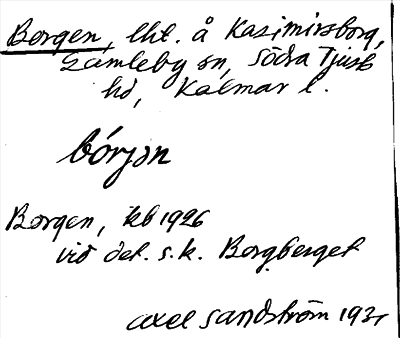 Borgen, lht. å Kasimirsborg,
Gamleby sn, Södra Tjust
hd, Kalmar l.
bórjən
Borgen, kb 1926
vid det s.k. Borgberget
Axel Sandström 193